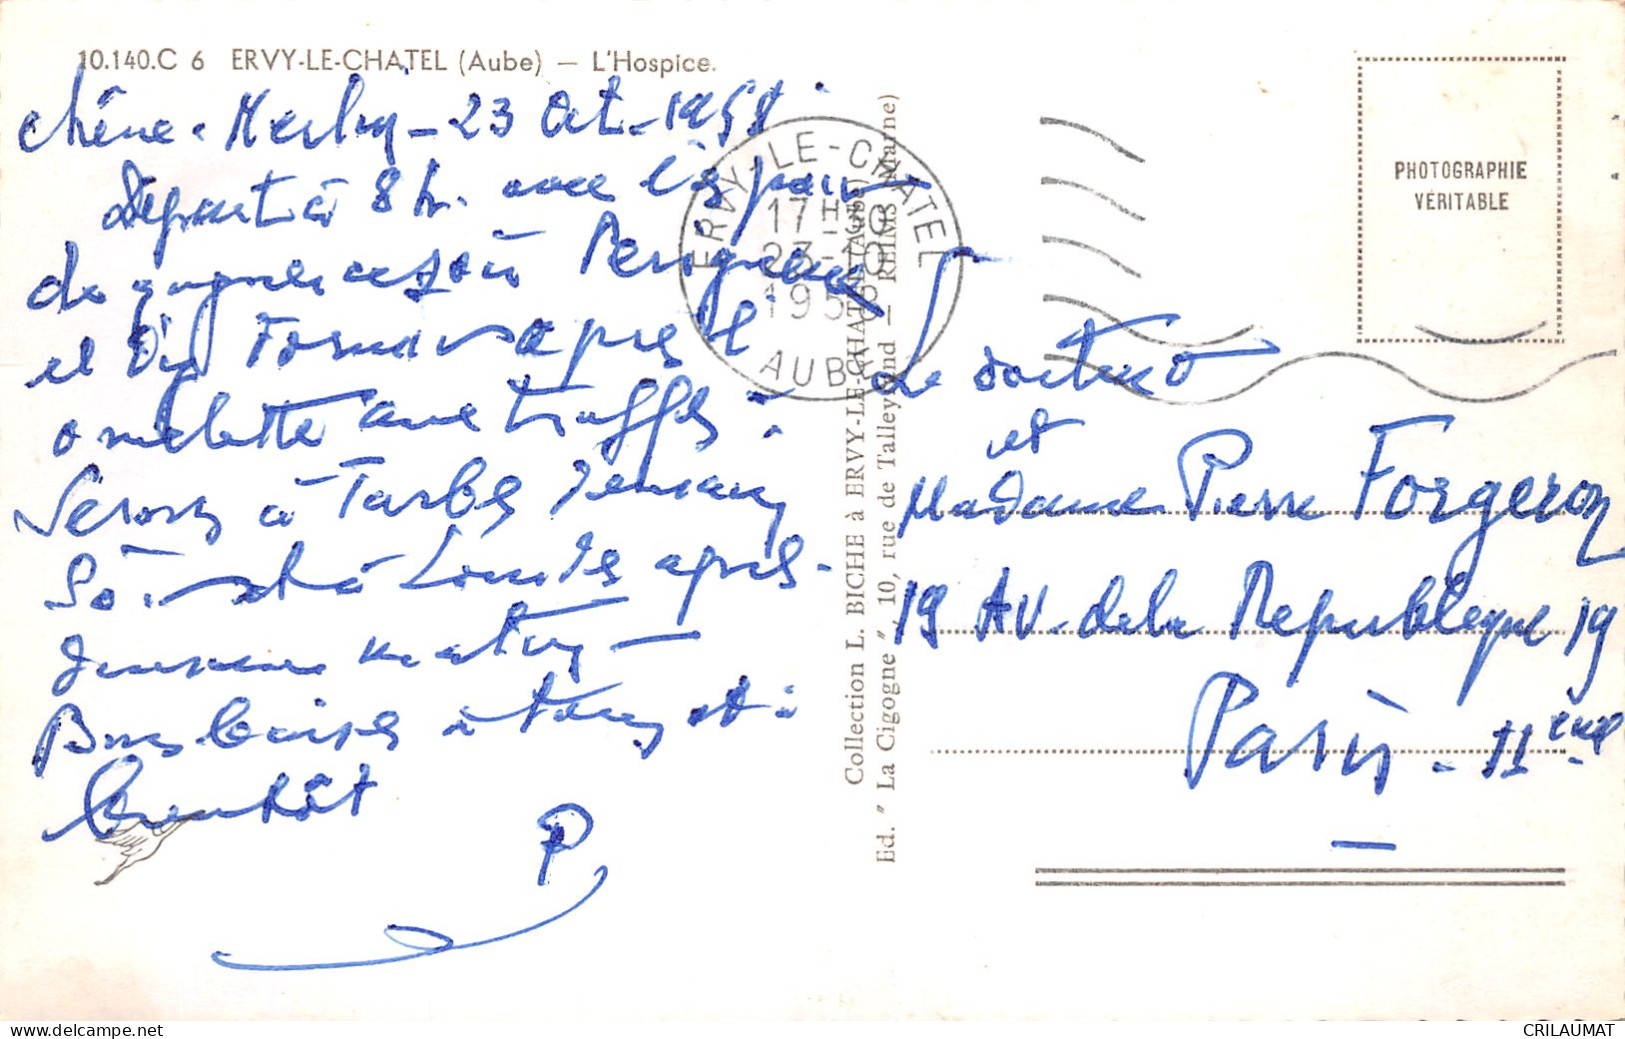 10.140.C 6 ERVY-LE-CHATEL (Aube) — L'Hospice.
23 Oct. 1958
Départ à 8 h. avec l'espoir
de gagner ce soir Perigueux
et après l'
omelette aux truffes.
Serons à Tarbes demain
soir et à Lourdes après-
demain matin —
Bons baisers à tous et à
bientôt
P
ERVY-LE-CHATEL
17H
23-10
1958
AUBE
Collection L. BICHE à ERVY-LE-CHATEL (Aube)
Ed. "La Cigogne", 10, rue de Talleyrand — REIMS (Marne)
PHOTOGRAPHIE
VÉRITABLE
Le docteur
et
Madame Pierre Forgeron
19 Av. de la Republique 19
Paris - 11eme
delcampe.net
CRILAUMAT